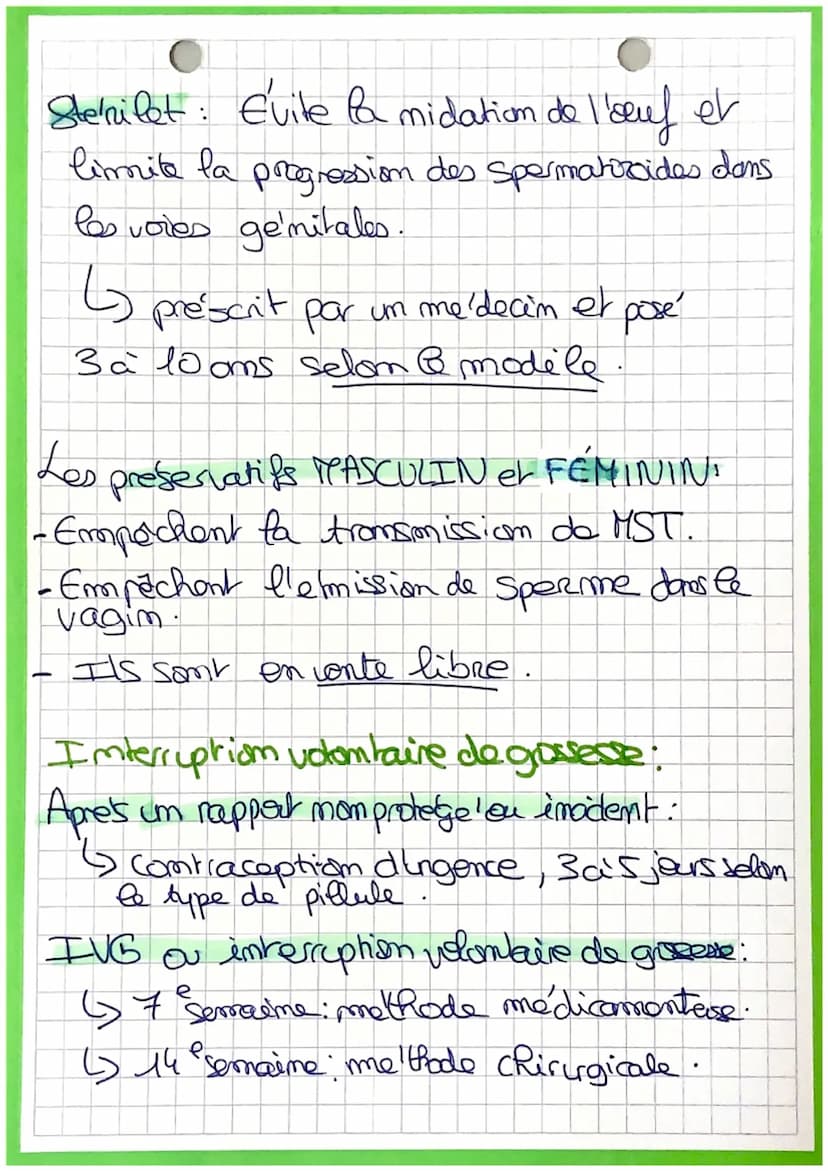 Stérilet : Évite la nidation de l'œuf et
limite la progression des spermatozoides dans
les voies génitales.
↳ préscrit par un médecin et posé
3 à 10 ans selon le modèle.
Les préservatifs MASCULIN et FÉMININ:
- Empêchent la transmission de MST.
- Empêchent l'émission de sperme dans le
vagin.
- Ils sont en vente libre.
Interruption volontaire de gossesse :
Aprés un rapport non protégé ou incident :
↳ Contraception d'urgence, 3 à 5 jours selon
le type de pillule.
IVG ou interruption volontaire de gossesse :
↳ 7e semaine : méthode médicamenteuse.
↳ 14e semaine : méthode chirurgicale.